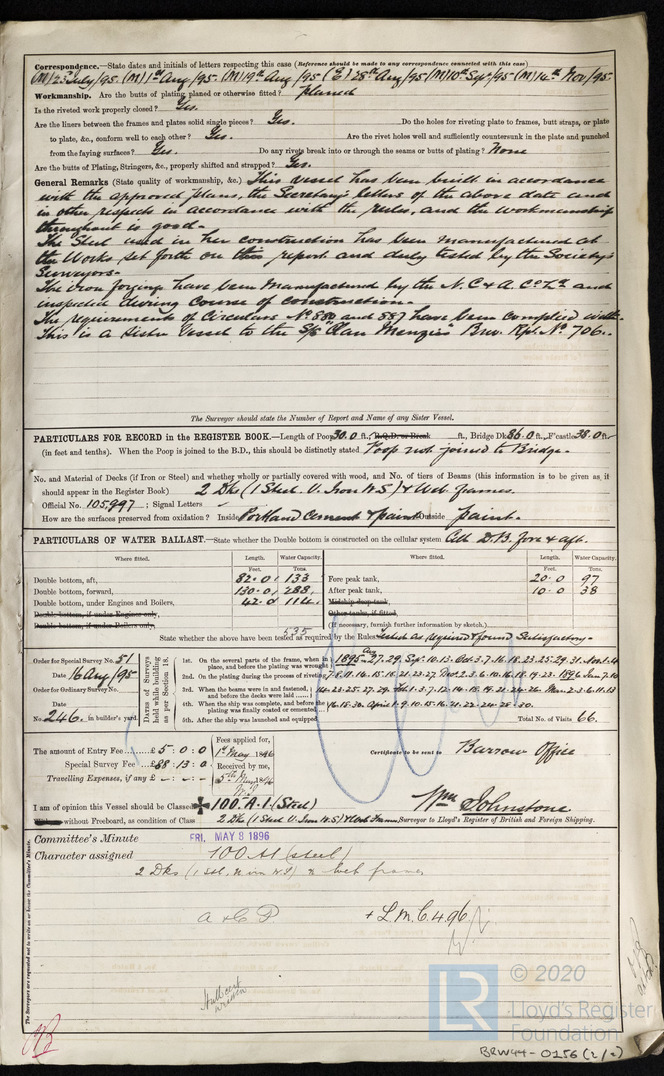 Correspondence.—State dates and initials of letters respecting this case (Reference should be made to any correspondence connected with this case)
(M) 23rd July/95. (M) 1st Aug/95. (M) 19th Aug/95 (E) 28th Aug/95 (M) 10th Sept/95 (M) 14th Nov/95.
Workmanship. Are the butts of plating planed or otherwise fitted? planed
Is the riveted work properly closed? Yes.
Are the liners between the frames and plates solid single pieces? Yes. Do the holes for riveting plate to frames, butt straps, or plate
to plate, &c., conform well to each other? Yes. Are the rivet holes well and sufficiently countersunk in the plate and punched
from the faying surfaces? Yes. Do any rivets break into or through the seams or butts of plating? None
Are the butts of Plating, Stringers, &c., properly shifted and strapped? Yes.
General Remarks (State quality of workmanship, &c.) This vessel has been built in accordance
with the approved plans, the Secretary's letters of the above date and
in other respects in accordance with the rules, and the workmanship
throughout is good.
The Steel used in her construction has been manufactured at
the Works set forth on this report and duly tested by the Society's
Surveyors.
The iron forgings have been manufactured by the N. C & A. Co Ltd and
inspected during course of construction.
The requirements of Circulars No. 880 and 887 have been complied with.
This is a Sister Vessel to the S/s "Clan Menzies" Brw. Rpt. No. 706.
The Surveyor should state the Number of Report and Name of any Sister Vessel.
PARTICULARS FOR RECORD in the REGISTER BOOK.—Length of Poop 30.0 ft., R.Q.D. or Break ft., Bridge Dk 86.0 ft., F'castle 38.0 ft.
(in feet and tenths). When the Poop is joined to the B.D., this should be distinctly stated Poop not joined to Bridge.
No. and Material of Decks (if Iron or Steel) and whether wholly or partially covered with wood, and No. of tiers of Beams (this information is to be given as it
should appear in the Register Book) 2 Dks (1 Steel. U. Iron N.S) & Web frames.
Official No. 105,997; Signal Letters -
How are the surfaces preserved from oxidation? Inside Portland Cement & paint Outside paint.
PARTICULARS OF WATER BALLAST.—State whether the Double bottom is constructed on the cellular system Cell D.B. fore & aft.
Where fitted. Length. Water Capacity. Where fitted. Length. Water Capacity.
Feet. Tons. Feet. Tons.
Double bottom, aft, 82.0 133 Fore peak tank, 20.0 97
Double bottom, forward, 130.0 288 After peak tank, 10.0 38
Double bottom, under Engines and Boilers, 42.0 114 Midship deep tank,
Double bottom, if under Engines only, Other tanks, if fitted,
Double bottom, if under Boilers only, (If necessary, furnish further information by sketch.)
535
State whether the above have been tested as required by the Rules Tested as required & found satisfactory.
Order for Special Survey No. 51
Date 16 Aug/95
Order for Ordinary Survey No.
Date
No. 246. in builder's yard.
Dates of Surveys held while building as per Section 18.
1st. On the several parts of the frame, when in place, and before the plating was wrought 1895 Aug 27. 29. Sep. 10. 13. Oct. 3. 7. 16. 18. 23. 25. 29. 31. Nov. 1. 4
2nd. On the plating during the process of riveting 7. 8. 11. 14. 15. 18. 21. 23. 27 Dec 2. 3. 6. 10. 16. 18. 19. 23. 1896 Jan. 7. 10
3rd. When the beams were in and fastened, and before the decks were laid 14. 23. 25. 27. 29. Feb 1. 3. 7. 12. 14. 18. 19. 21. 24. 26. Mar. 2. 3. 6. 11. 13
4th. When the ship was complete, and before the plating was finally coated or cemented 16. 18. 30. April 1. 9. 10. 15. 16. 21. 22. 24. 28. 30.
5th. After the ship was launched and equipped Total No. of Visits 66.
The amount of Entry Fee £5 : 0 : 0
Special Survey Fee £88 : 13 : 0
Travelling Expenses, if any £ - : - : -
Fees applied for,
1st May 1896
Received by me,
5th May 1896
Certificate to be sent to Barrow Office
I am of opinion this Vessel should be Classed ✠ 100. A. 1. (Steel)
without Freeboard, as condition of Class 2 Dks (1 Steel U. Iron N.S) & Web Frames
Wm Johnstone
Surveyor to Lloyd's Register of British and Foreign Shipping.
Committee's Minute FRI. MAY 8 1896
Character assigned 100 A1 (steel)
2 Dks (1 Stl, & web frames
A & C P + L.M.C. 4.96
The Surveyors are requested not to write on or below the Committee's Minute.
© 2020
LR
Lloyd's Register
Foundation
BRW44-0156 (2/2)